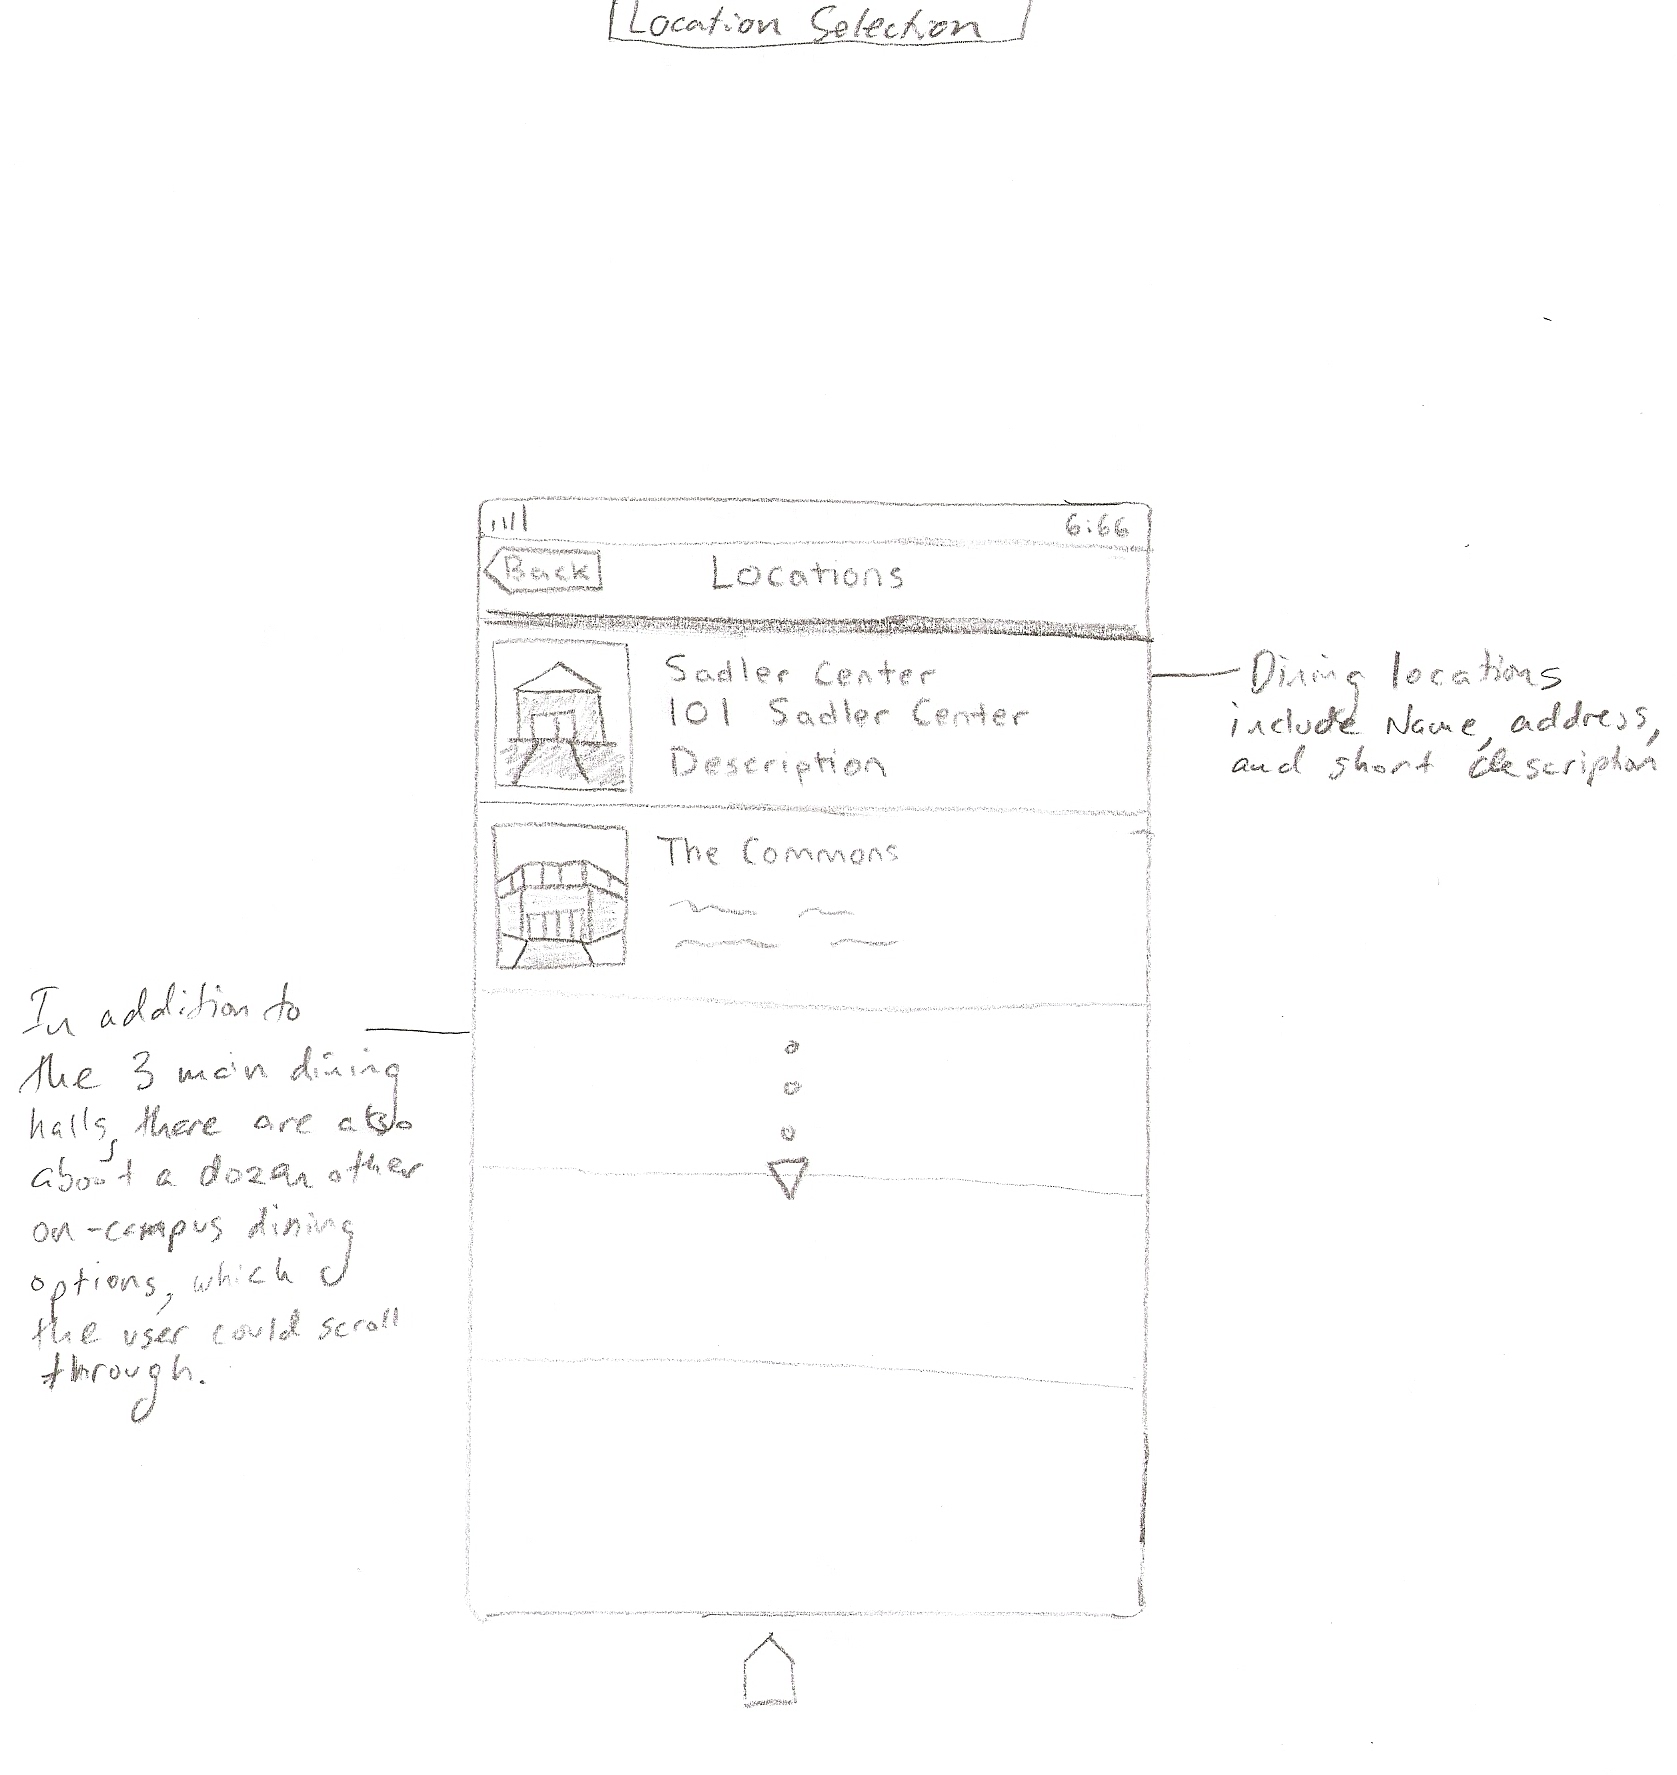 Location Selection
6:66
Back
Locations
Sadler Center
101 Sadler Center
Description
Dining locations
include Name, address,
and short description
The Commons
In addition to
the 3 main dining
halls, there are also
about a dozen other
on-campus dining
options, which
the user could scroll
through.